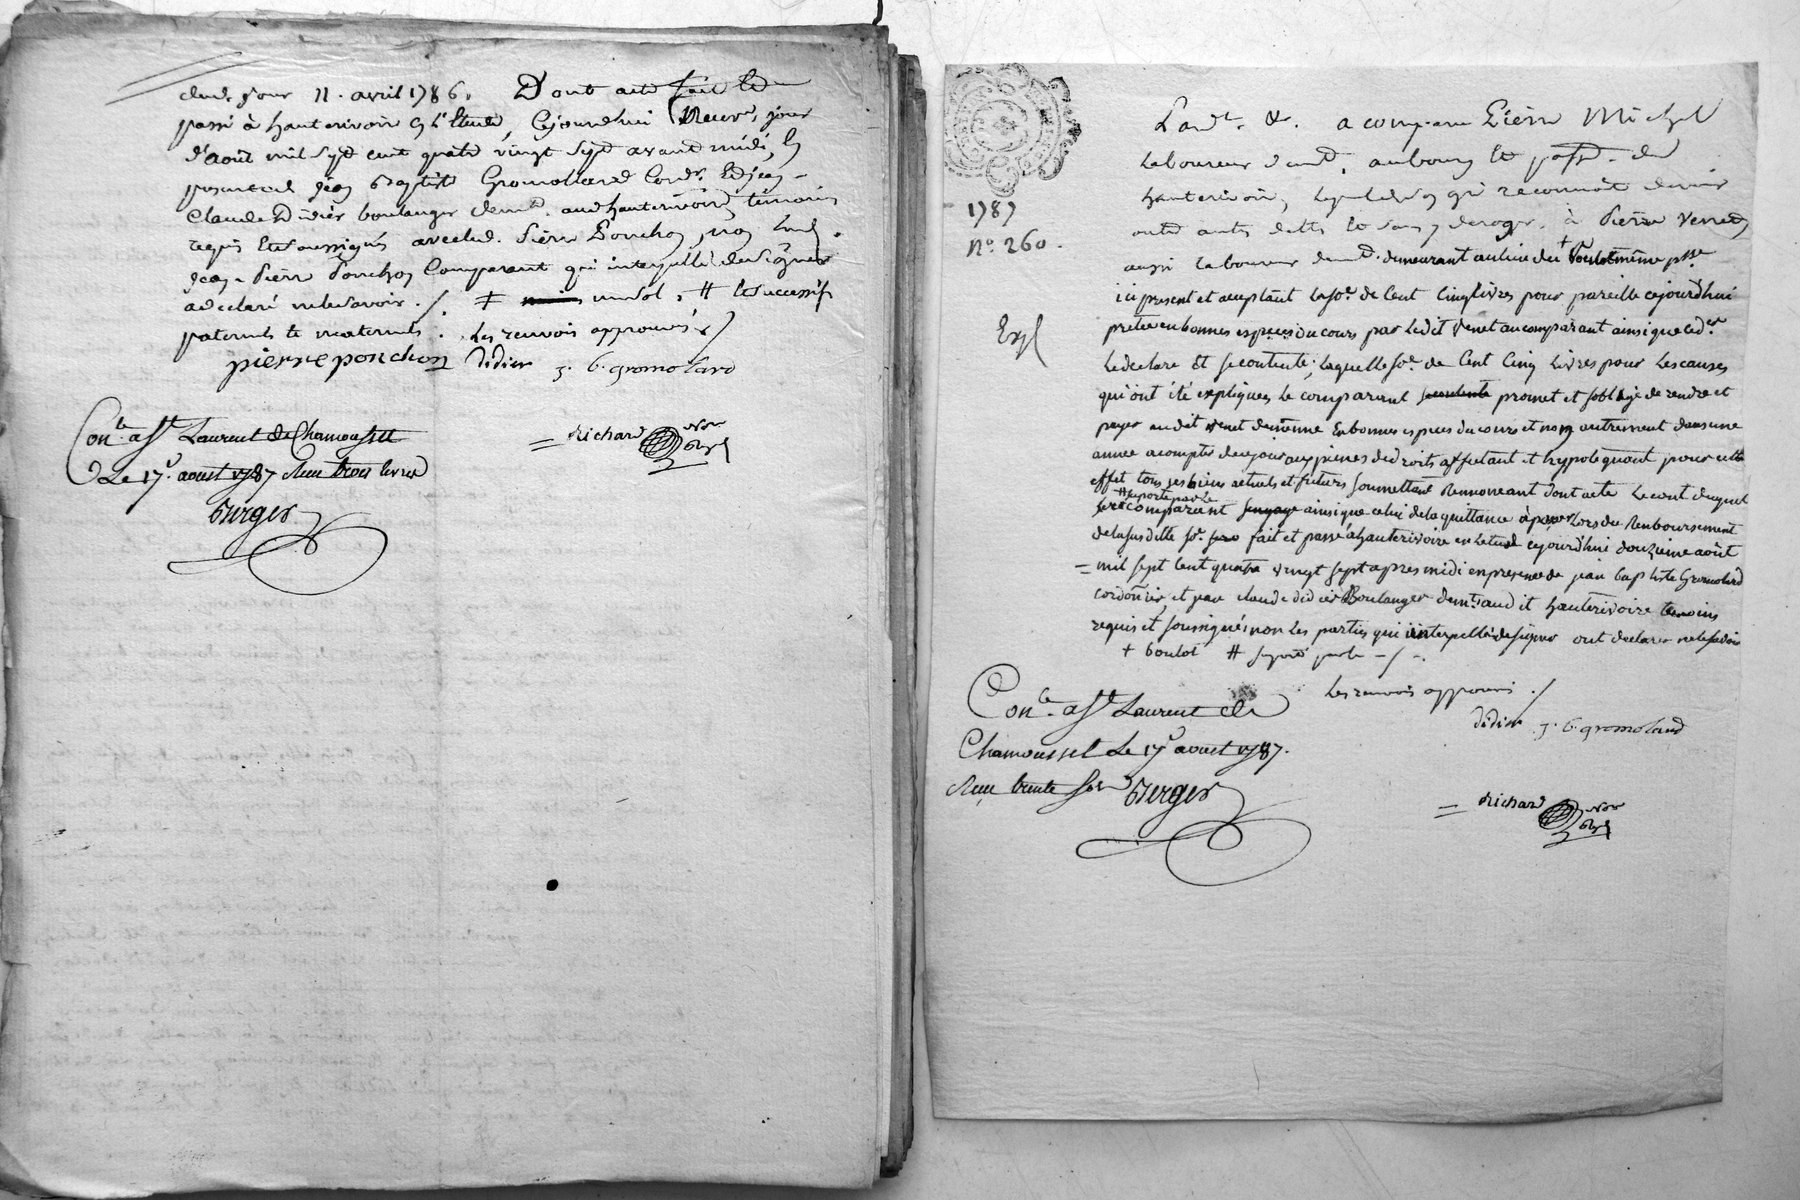 dud. jour 11. avril 1786. Dont acte fait et
passé à hauterivoire en l'Etude, Cejourdhui Neuve, jour
d'août mil sept cent quatre vingt sept avant midi, en
presence de jean Baptiste Gromollard Cord.r Et jean
Claude Didier boulanger demt. aud hauterivoire, témoins
requis Et soussignés avec led. Pierre Ponchon, non led.
jean Pierre Ponchon Comparant qui interpellé de signer
a declaré ne le savoir ./. ‡ un sol, # les successifs
paternels et maternels . Les renvois approuvés ./
pierre ponchon didier j. b. gromolard
Con.le a S.t Laurent de Chamousset
Le 17.e aoust 1787 Reçu trois livres
Berger
= Richard No.re Roy.l
1787
N.o 260.
Exp
Pard.t &. a comparu Pierre Michel
Laboureur demt. au bourg et parr. de
hauterivoire, lequel de gré reconnoit devoir
outre autre dette et sans y deroger, à Pierre Venet
aussi laboureur demt. demeurant au lieu du + Boulot même psse
ici present et acceptant la so.e de Cent Cinq livres pour pareille cejourd'hui
pretée en bonnes especes du cours par ledit Venet au comparant ainsi que ced.er
Le declare Et se contente; laquelle so.e de Cent Cinq Livres pour les causes
qui ont été expliquées le comparant promet et s'oblige de rendre et
payer audit Venet de même En bonnes especes du cours et non autrement dans une
année a compter de ce jour aux peines de droits affectant et hypotequant pour cette
effet tous ses biens actuels et futurs soumettant Renonceant dont acte Le cout duquel
# suporté par le
comparant ainsi que celui de la quittance à passer Lors du Remboursement
de la susditte so.e fait et passé à hauterivoire en l'etude cejourd'hui douzieme août
= mil sept Cent quatre vingt sept apres midi en presence de jean baptiste Gromolard
cordonier, et jean claude didier Boulanger demt. audit hauterivoire temoins
requis et soussignés non les parties qui interpellé de signer ont declarer ne le savoir
+ boulot # suporté par le ./.
Les renvois approuvés ./
didier j. b. gromolard
Con.le a S.t Laurent de
Chamousset Le 17.e aoust 1787.
Reçu trente sols Berger
= Richard No.re Roy.l